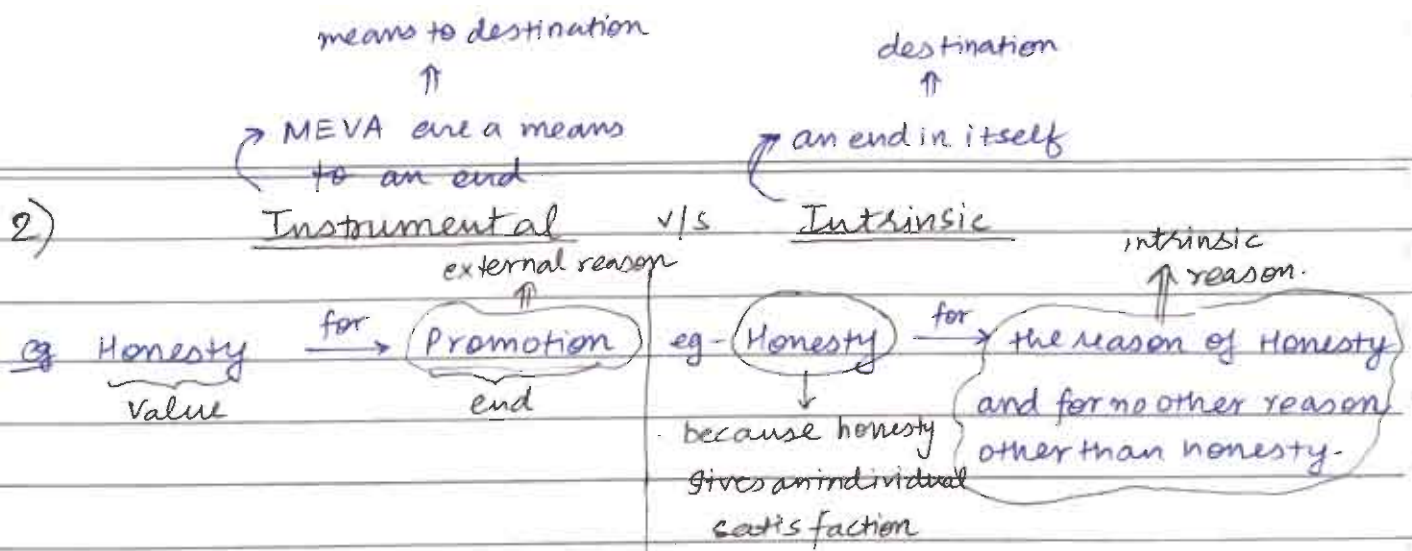 means to destination
⇑
MEVA are a means
to an end
destination
⇑
an end in itself
2) Instrumental v/s Intrinsic
external reason
⇑
eg Honesty for → Promotion
Value end
intrinsic
⇑ reason.
eg - Honesty for → the reason of Honesty
and for no other reason
other than honesty.
↓
because honesty
gives an individual
satisfaction